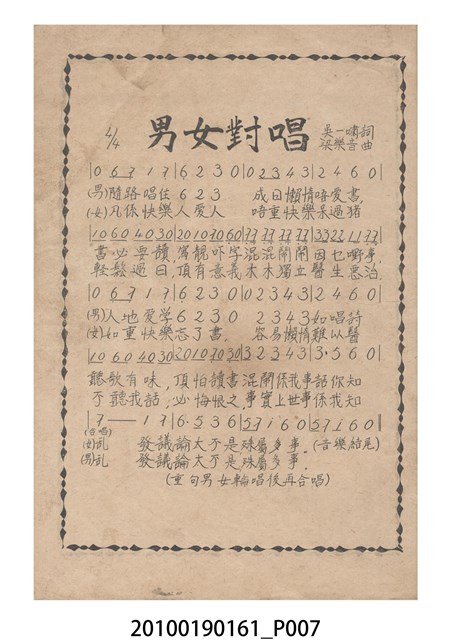 4/4 男女對唱 吳一嘯詞
梁樂音曲
|0 6 7 1 7|6 2 3 0|0 2 3 4 3|2 4 6 0|
(男)隨路唱住 6 2 3 成日懶惰唔愛書,
(女)凡係快樂人愛人 唔重快樂呆過猪
|0 6 0 4 0 3 0|2 0 1 0 7 0 6 0|7 7 7 7 7 7 7 7|3 3 2 2 1 1 7 7|
書必要讀,寫靚吓字混混鬧鬧因乜嘢事,
輕鬆過日,頂有意義木木獨立醫生惡治.
|0 6 7 1 7|6 2 3 0|0 2 3 4 3|2 4 6 0|
(男)人地愛學 6 2 3 0 2 3 4 3 如唱詩
(女)如重快樂忘了書, 容易懶惰難以醫
|0 6 0 4 0 3 0|2 0 1 0 7 0 3 0|3 2 3 4 3|3·5 6 0|
聽歌有味,頂怕讀書混鬧係我事話你知
不聽我話,必悔恨之事實上世事係我知
|7 — 1 7|6·5 3 6|5 7 1 6 0|5 7 1 6 0||
(合唱)
(女)乱 發議論大不是殊屬多事. (音樂結尾)
(男)乱 發議論大不是殊屬多事.
(重句男女輪唱後再合唱)
20100190161_P007